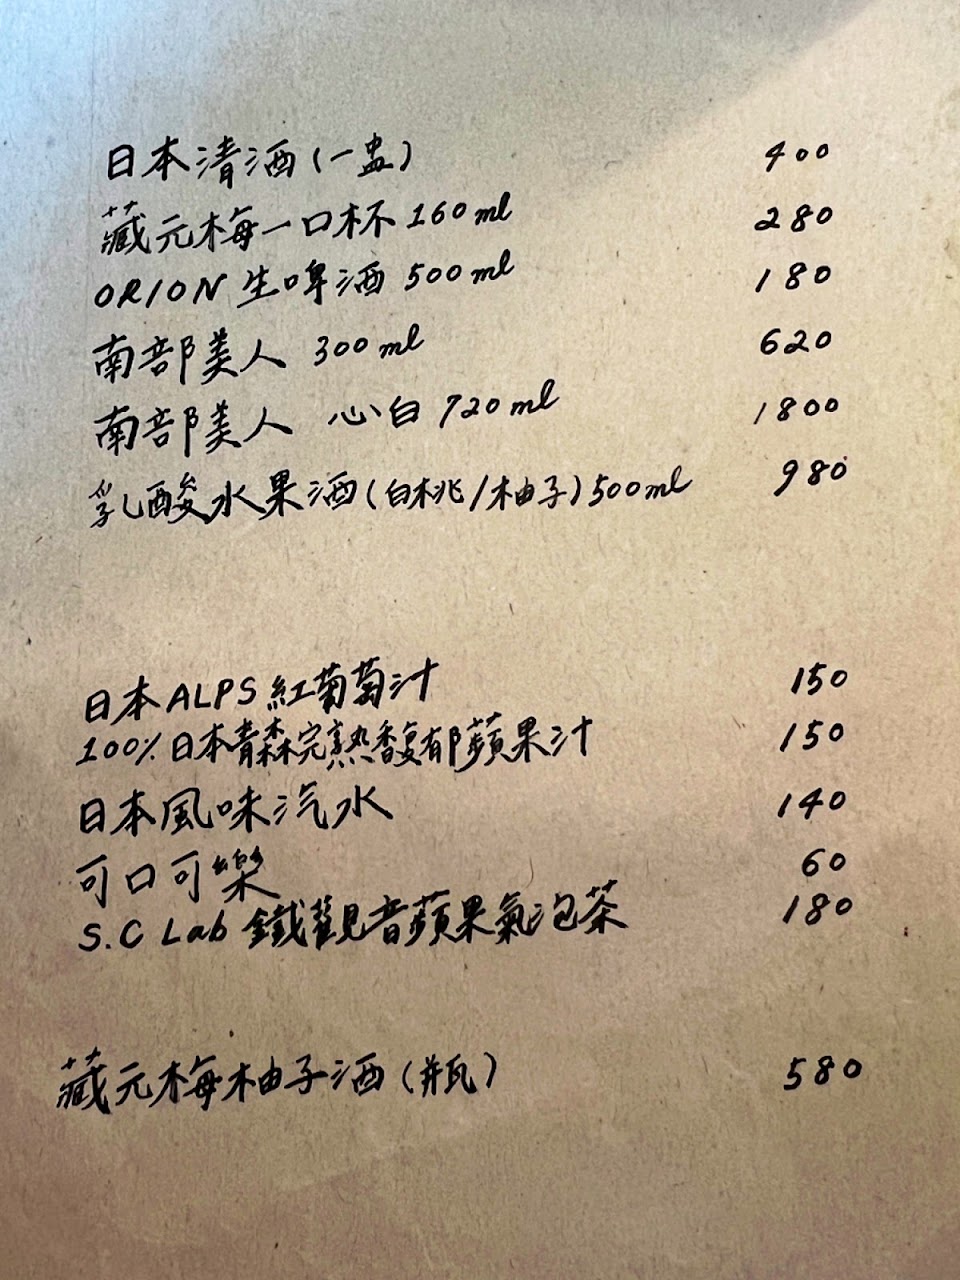 日本清酒(一盅) 400
藏元梅一口杯 160ml 280
ORION 生啤酒 500ml 180
南部美人 300ml 620
南部美人 心白 720ml 1800
乳酸水果酒(白桃/柚子)500ml 980
日本ALPS紅葡萄汁 150
100%日本青森完熟馥郁蘋果汁 150
日本風味汽水 140
可口可樂 60
S.C Lab 鐵觀音蘋果氣泡茶 180
藏元梅柚子酒(瓶) 580